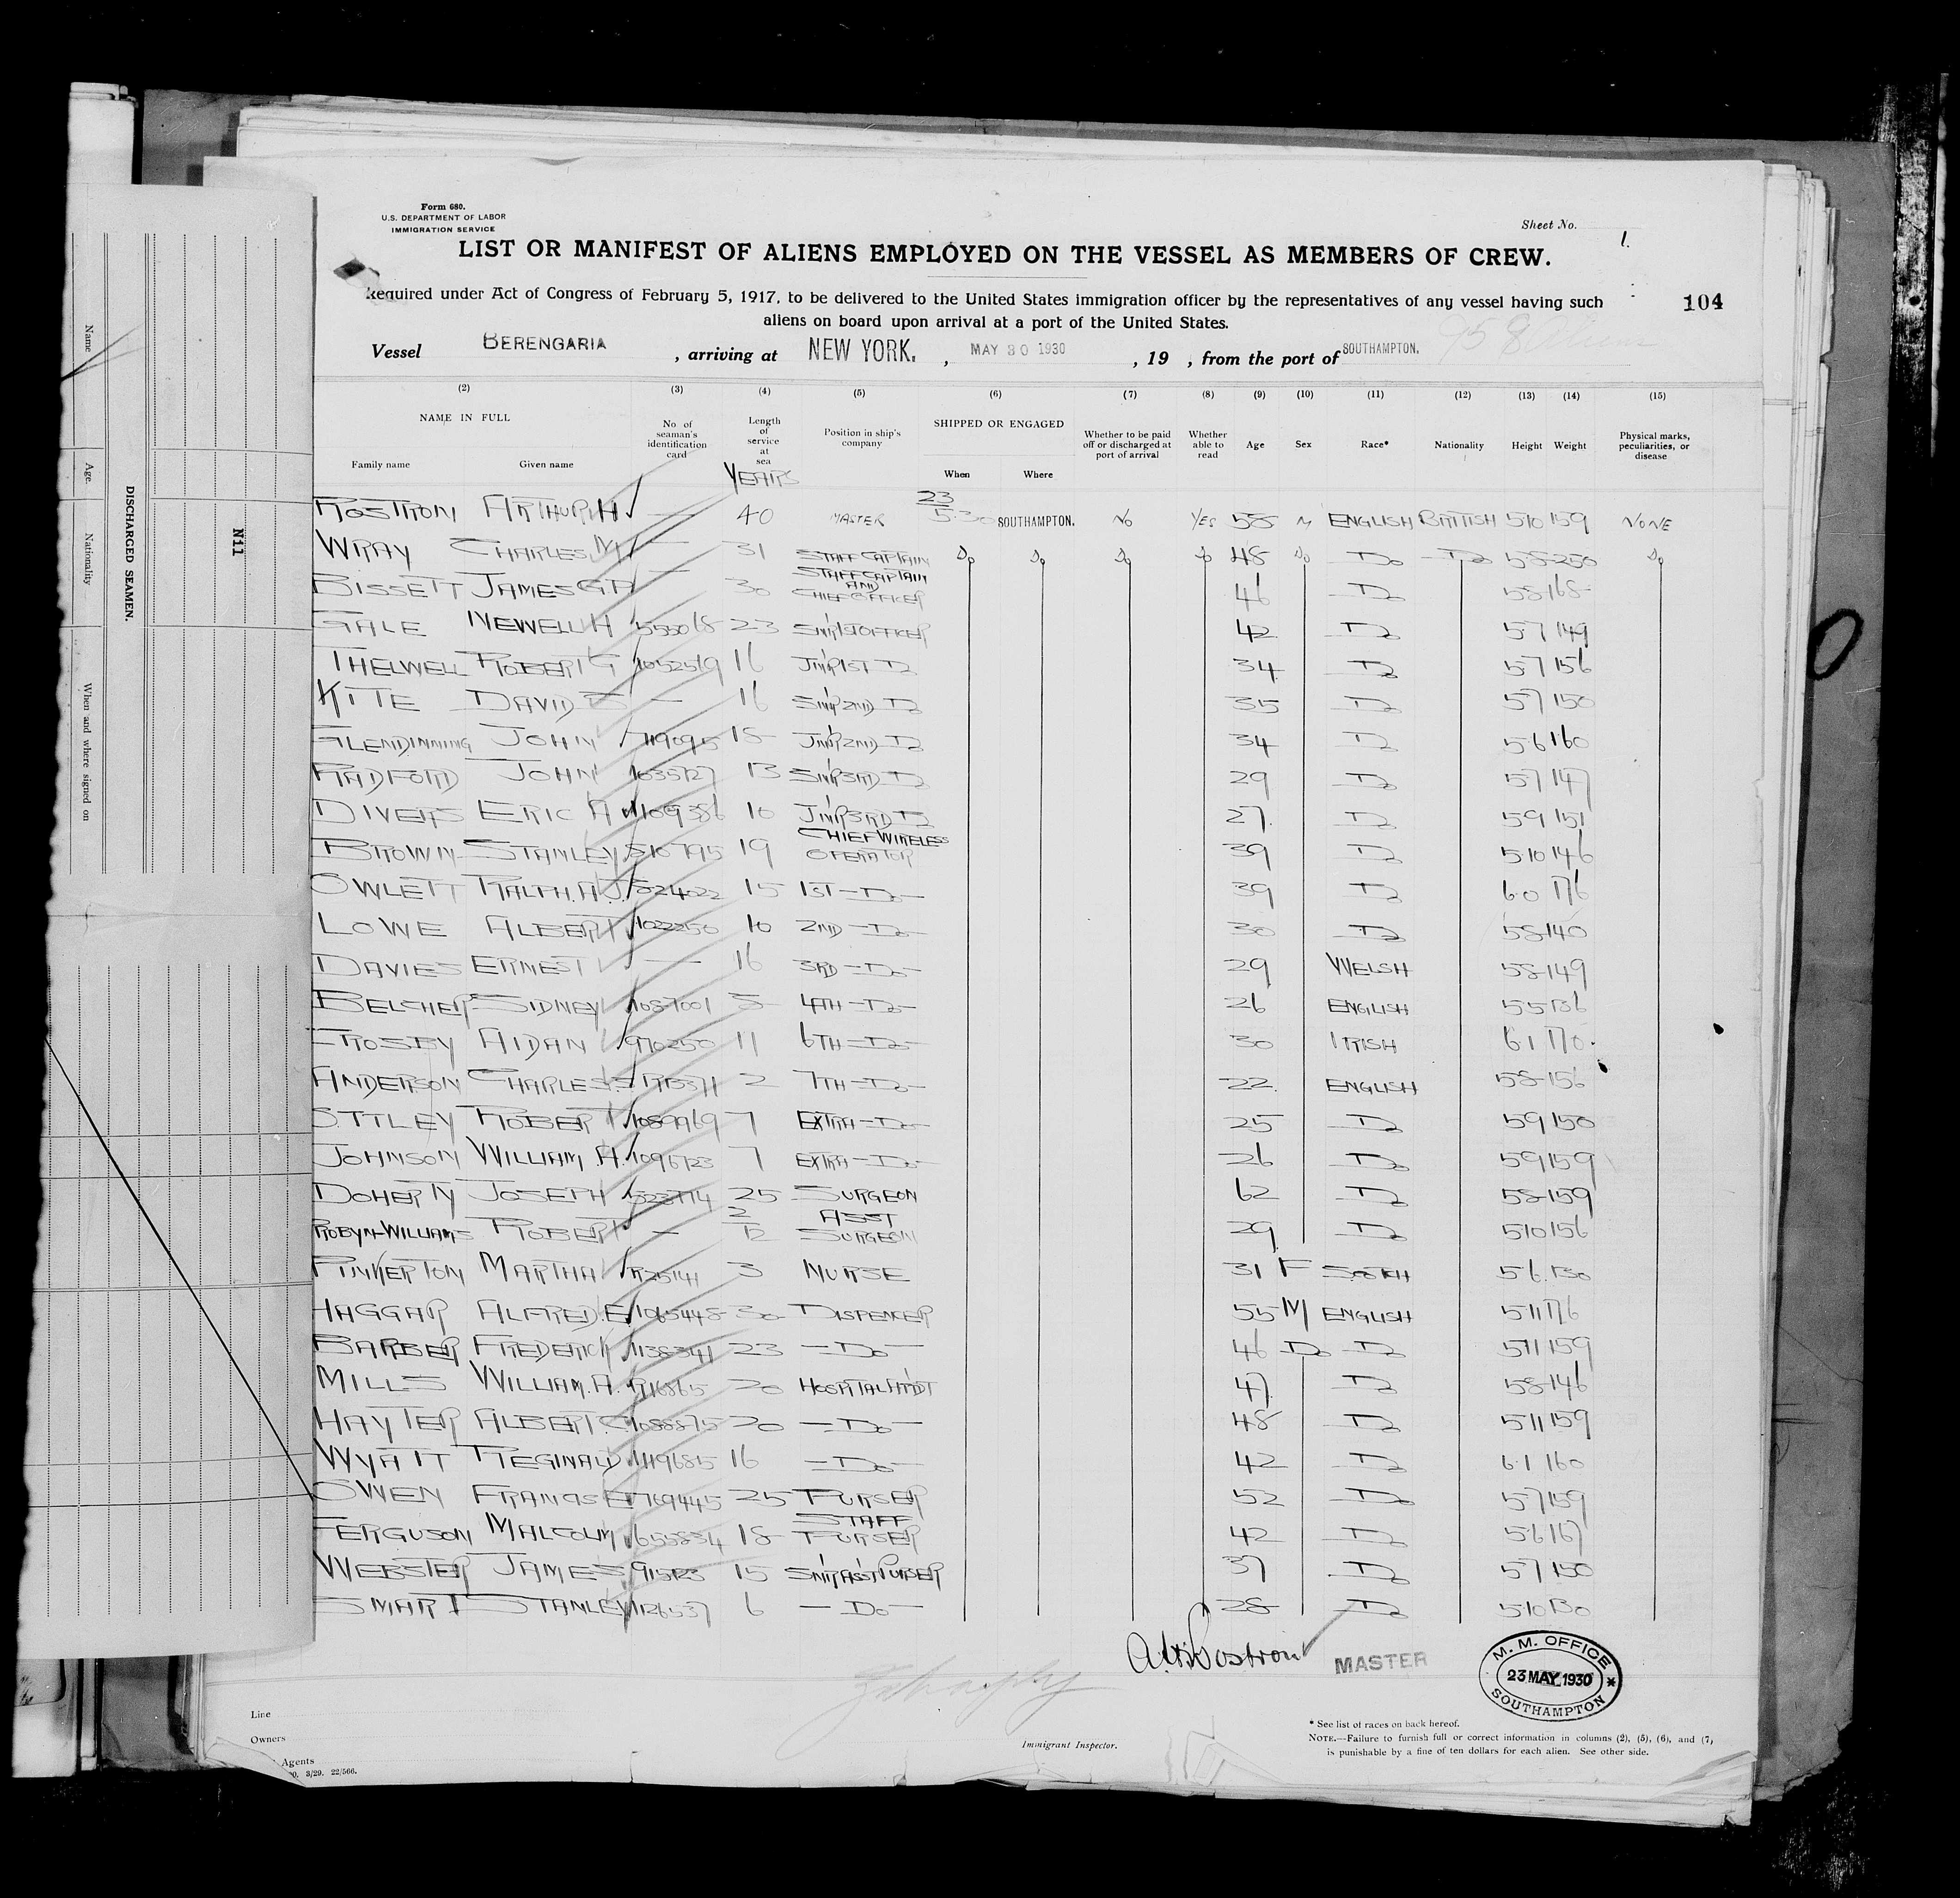 Form 680.
U.S. DEPARTMENT OF LABOR
IMMIGRATION SERVICE
Sheet No. 1.
LIST OR MANIFEST OF ALIENS EMPLOYED ON THE VESSEL AS MEMBERS OF CREW.
Required under Act of Congress of February 5, 1917, to be delivered to the United States immigration officer by the representatives of any vessel having such
104
aliens on board upon arrival at a port of the United States.
Vessel BERENGARIA , arriving at NEW YORK. , MAY 30 1930 , 19 , from the port of SOUTHAMPTON.
(2) (3) (4) (5) (6) (7) (8) (9) (10) (11) (12) (13) (14) (15)
NAME IN FULL Family name Given name
No. of seaman's identification card
Length of service at sea YEARS
Position in ship's company
SHIPPED OR ENGAGED When Where
Whether to be paid off or discharged at port of arrival
Whether able to read
Age Sex Race* Nationality Height Weight
Physical marks, peculiarities, or disease
ROSTRON ARTHUR H — 40 MASTER 23 5.30 SOUTHAMPTON. NO YES 58 M ENGLISH BRITISH 510 159 NONE
WRAY CHARLES M — 31 STAFF CAPTAIN Do Do Do Do 48 Do — Do — Do 58 250 Do
BISSETT JAMES G.P — 30 STAFF CAPTAIN AND CHIEF OFFICER 46 — Do 58 168
GALE NEWELL H 23 SNR 1ST OFFICER 42 — Do 57 149
THELWELL ROBERT G 1052519 16 JNR 1ST Do 34 — Do 57 156
KITE DAVID — 16 SNR 2ND Do 35 — Do 57 150
GLENDINNING JOHN 1119095 JNR 2ND Do 34 — Do 56 160
RADFORD JOHN 1035727 13 SNR 3RD Do 29 — Do 57 147
DIVERS ERIC A 1109386 10 JNR 3RD Do 27 — Do 59 151
BROWN STANLEY 510795 19 CHIEF WIRELESS OPERATOR 39 — Do 510 146
OWLETT RALPH. A.J. 524022 15 1ST — Do — 39 — Do 60 176
LOWE ALBERT 1022250 10 2ND — Do — 30 — Do 58 140
DAVIES ERNEST — 16 3RD — Do — 29 WELSH 58 149
BELCHER SIDNEY 1087001 5 4TH — Do — 26 ENGLISH 55 136
CROSBY AIDAN 970250 11 6TH — Do — 30 IRISH 61 170
ANDERSON CHARLES 2 7TH — Do — 22 ENGLISH 58 156
ROBERT 1089969 7 EXTRA — Do — 25 — Do 59 150
JOHNSON WILLIAM. A. 1096723 7 EXTRA — Do — 26 — Do 59 159
DOHERTY JOSEPH 25 SURGEON 62 — Do 58 159
ROBYN-WILLIAMS ROBERT — 2 12 ASST SURGEON 29 — Do 510 156
PINKERTON MARTHA R25141 3 NURSE 31 F SCOTCH 56 130
HAGGAR ALFRED. E. 1065448 30 DISPENCER 55 M ENGLISH 511 176
BARBER FREDERICK 1138341 23 — Do — 46 Do — Do 511 159
MILLS WILLIAM. A. 20 HOSPITAL ATTDT 47 — Do 58 146
HAYTER ALBERT 1088875 20 — Do — 48 — Do 511 159
WYATT REGINALD 1119685 16 — Do — 42 — Do 61 160
OWEN FRANCIS E 769445 25 PURSER 52 — Do 57 159
FERGUSON MALCOLM 655834 18 STAFF PURSER 42 — Do 56 167
WEBSTER JAMES 15 SNR ASST PURSER 37 — Do 57 150
SMART STANLEY 1126537 6 — Do — 28 — Do 510 130
A.H. Rostron MASTER
M. M. OFFICE
23 MAY 1930
SOUTHAMPTON
Line
Owners
Agents
3/29. 22/566.
Immigrant Inspector.
* See list of races on back hereof.
NOTE.—Failure to furnish full or correct information in columns (2), (5), (6), and (7)
is punishable by a fine of ten dollars for each alien. See other side.
DISCHARGED SEAMEN.
Name
Age.
Nationality
When and where signed on
Nil